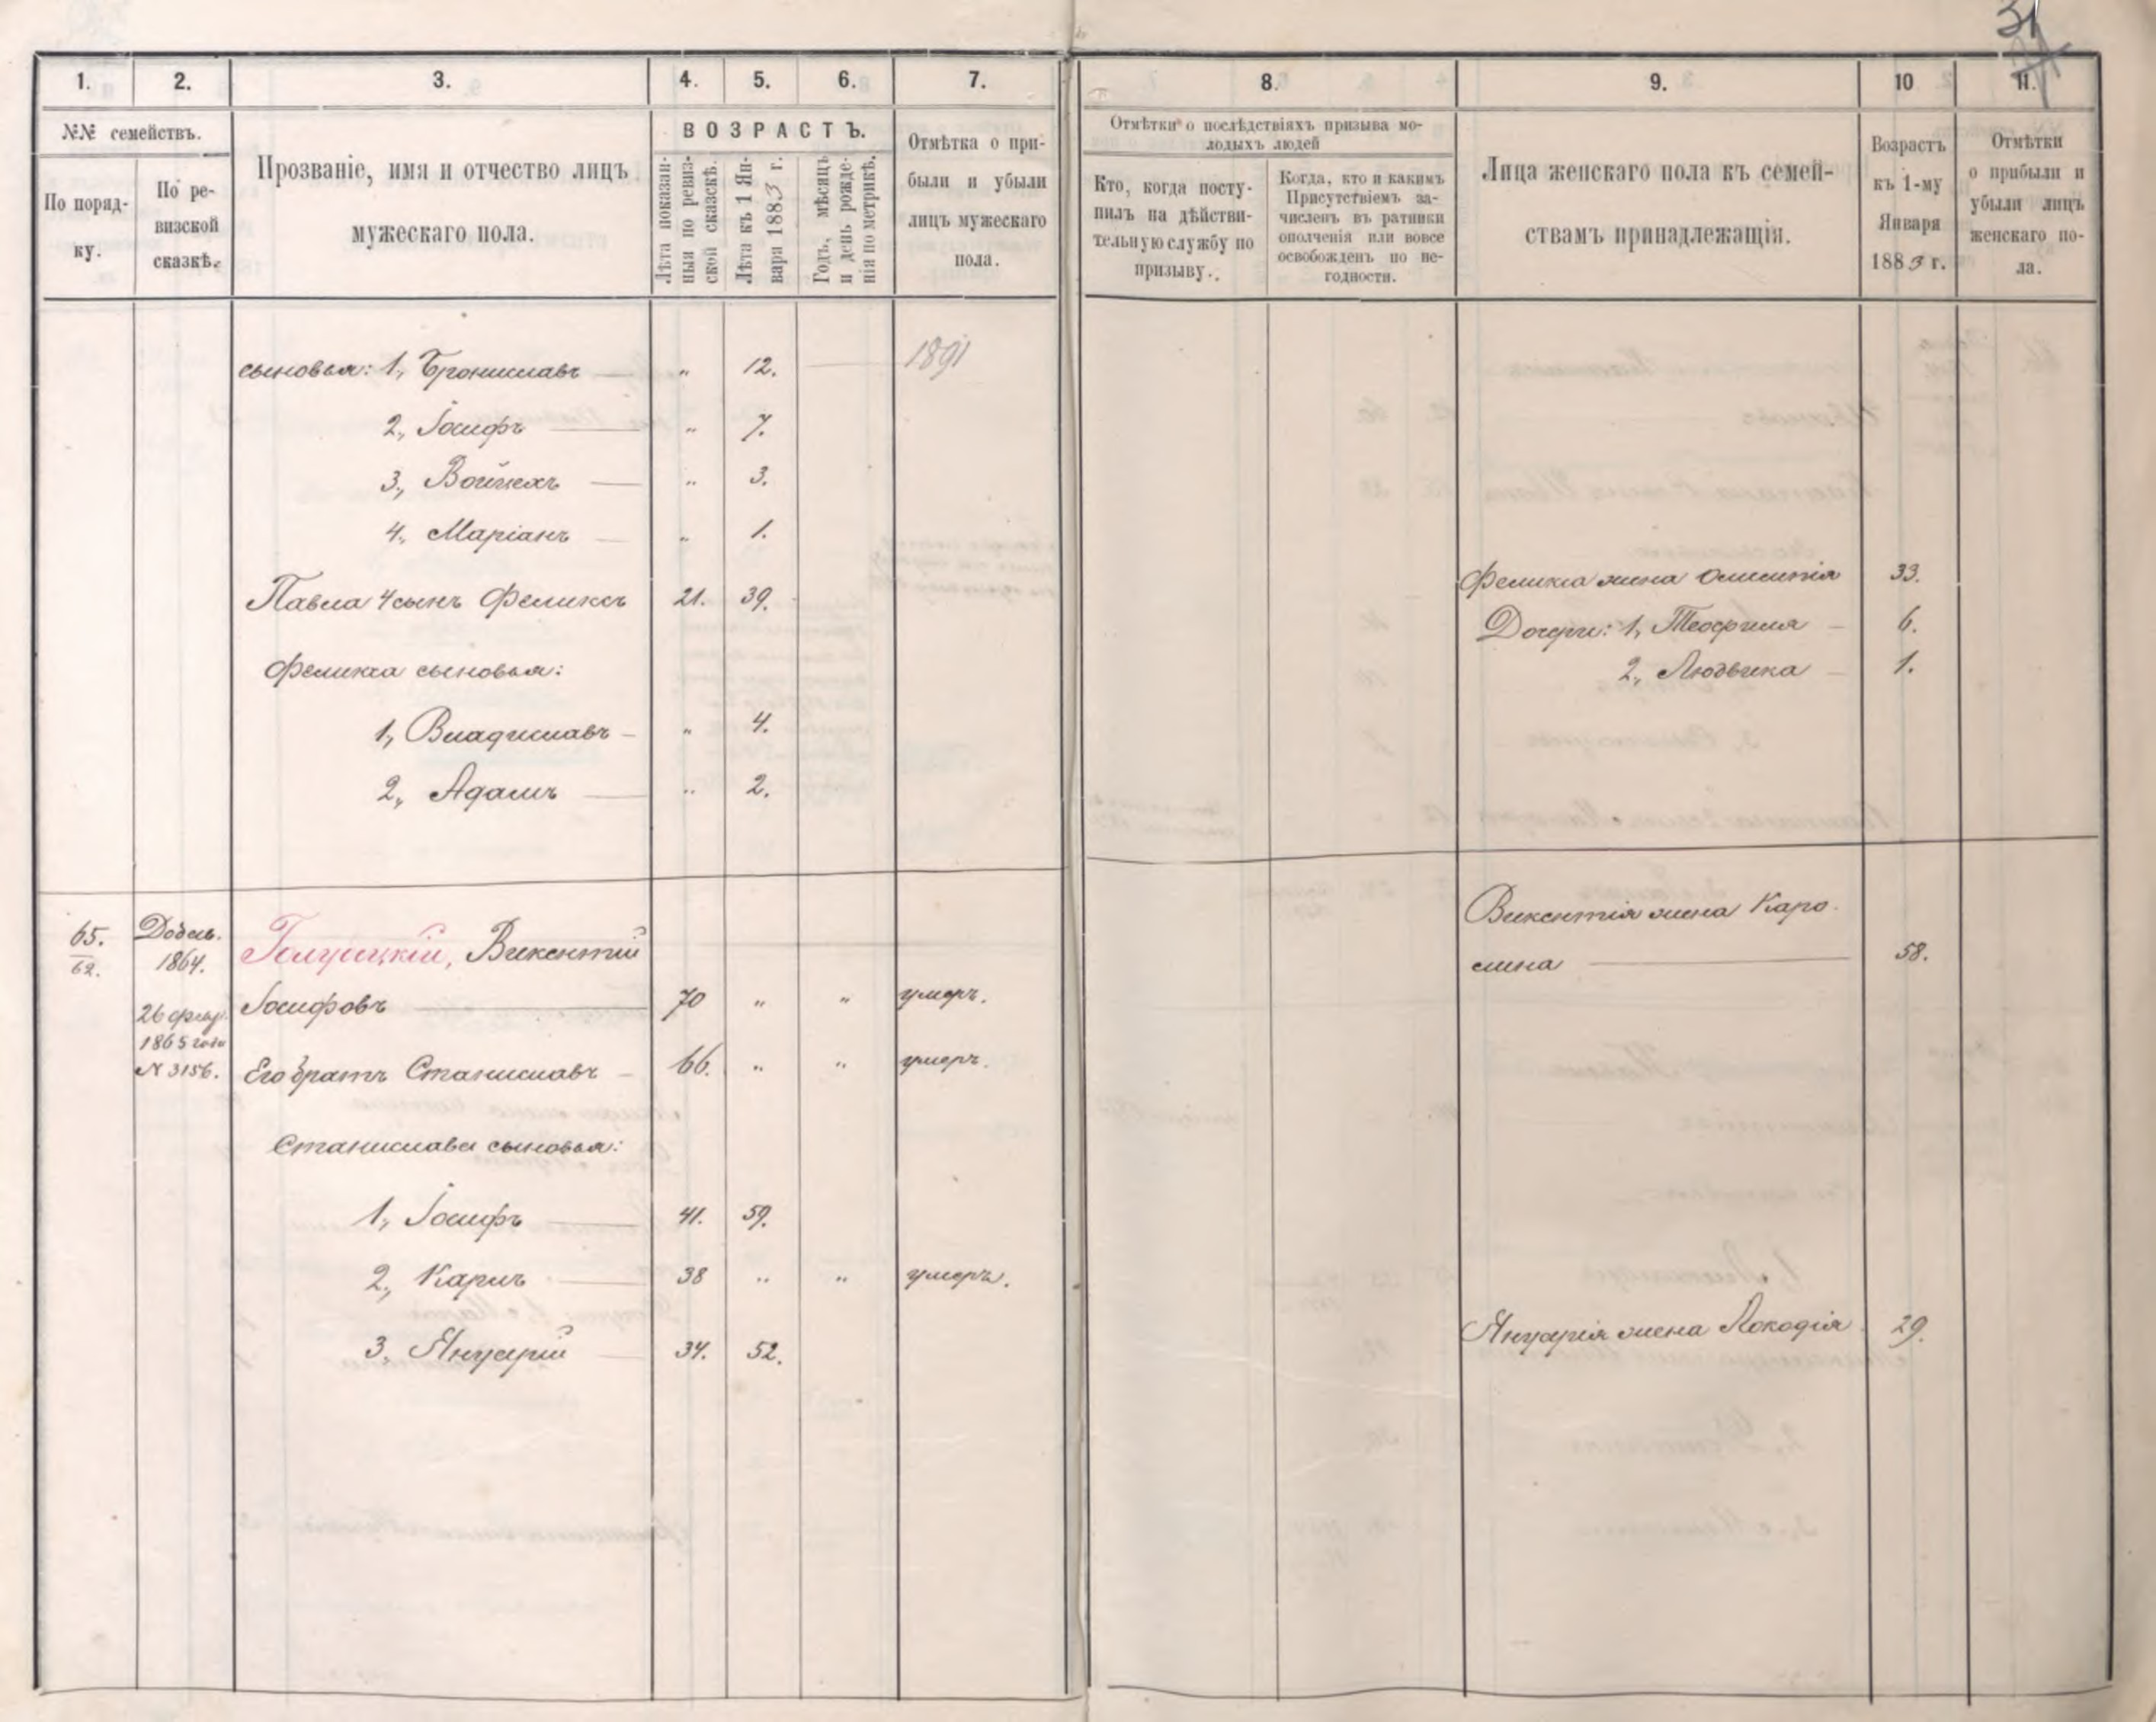 31
1. 2. 3. 4. 5. 6. 7. 8. 9. 10 11.
№№ семействъ.
По поряд-
ку.
По ре-
визской
сказкѣ.
Прозваніе, имя и отчество лицъ
мужескаго пола.
ВОЗРАСТЪ.
Лѣта показан-
ныя по ревиз-
ской сказкѣ.
Лѣта къ 1 Ян-
варя 1883 г.
Годъ, мѣсяцъ
и день рожде-
нія по метрикѣ.
Отмѣтка о при-
были и убыли
лицъ мужескаго
пола.
Отмѣтки о послѣдствіяхъ призыва мо-
лодыхъ людей
Кто, когда посту-
пилъ на дѣйстви-
тельную службу по
призыву.
Когда, кто и какимъ
Присутствіемъ за-
численъ въ ратники
ополченія или вовсе
освобожденъ по не-
годности.
Лица женскаго пола къ семей-
ствамъ принадлежащія.
Возрастъ
къ 1-му
Января
1883 г.
Отмѣтки
о прибыли и
убыли лицъ
женскаго по-
ла.
сыновья: 1, Брониславъ — " 12. 1891
2, Іосифъ — " 7.
3, Войцехъ — " 3.
4, Маріанъ — " 1.
Павла 4 сынъ Феликсъ 21. 39.
Феликса жена 33.
Феликса сыновья:
Дочери: 1, Теофиля — 6.
2, Людвика — 1.
1, Владиславъ — " 4.
2, Адамъ — " 2.
65.
62.
Добав.
1864.
26 февр.
1865 года
N 3156.
Викентій
Іосифовъ — 70 " " умеръ.
Викентія жена Каро-
лина — 58.
Его братъ Станиславъ — 66. " " умеръ.
Станислава сыновья:
1, Іосифъ — 41. 59.
2, Карлъ — 38 " " умеръ.
3, Януарій — 34. 52.
Януарія жена Локадія 29.